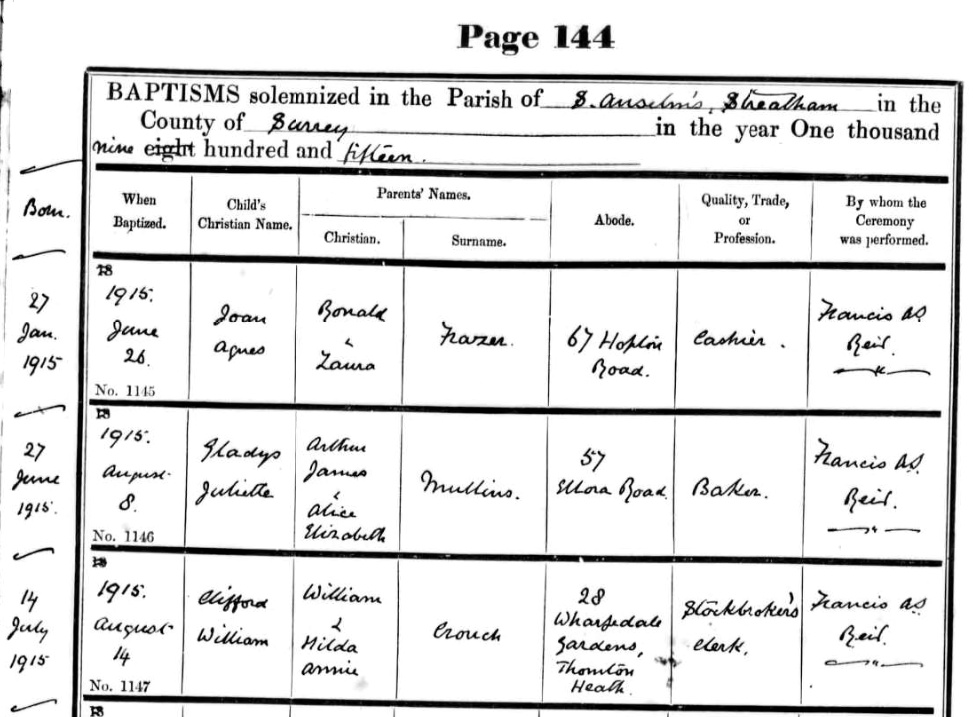 Page 144
BAPTISMS solemnized in the Parish of S. Anselm's, Streatham in the
County of Surrey in the year One thousand
nine eight hundred and fifteen.
Born.
When Baptized.
Child's Christian Name.
Parents' Names.
Christian.
Surname.
Abode.
Quality, Trade, or Profession.
By whom the Ceremony was performed.
27
Jan.
1915
18
1915.
June
26.
No. 1145
Joan
Agnes
Ronald
&
Laura
Frazer.
67 Hopton
Road.
Cashier.
Francis AS.
Reid.
27
June
1915.
18
1915.
August
8.
No. 1146
Gladys
Juliette
Arthur
James
&
Alice
Elizabeth
Mullins.
57
Ellora Road.
Baker.
Francis AS.
Reid.
14
July
1915
18
1915.
August
14
No. 1147
Clifford
William
William
&
Hilda
Annie
Crouch
28
Wharfedale
Gardens,
Thornton
Heath.
Stockbroker's
Clerk.
Francis AS.
Reid.
18